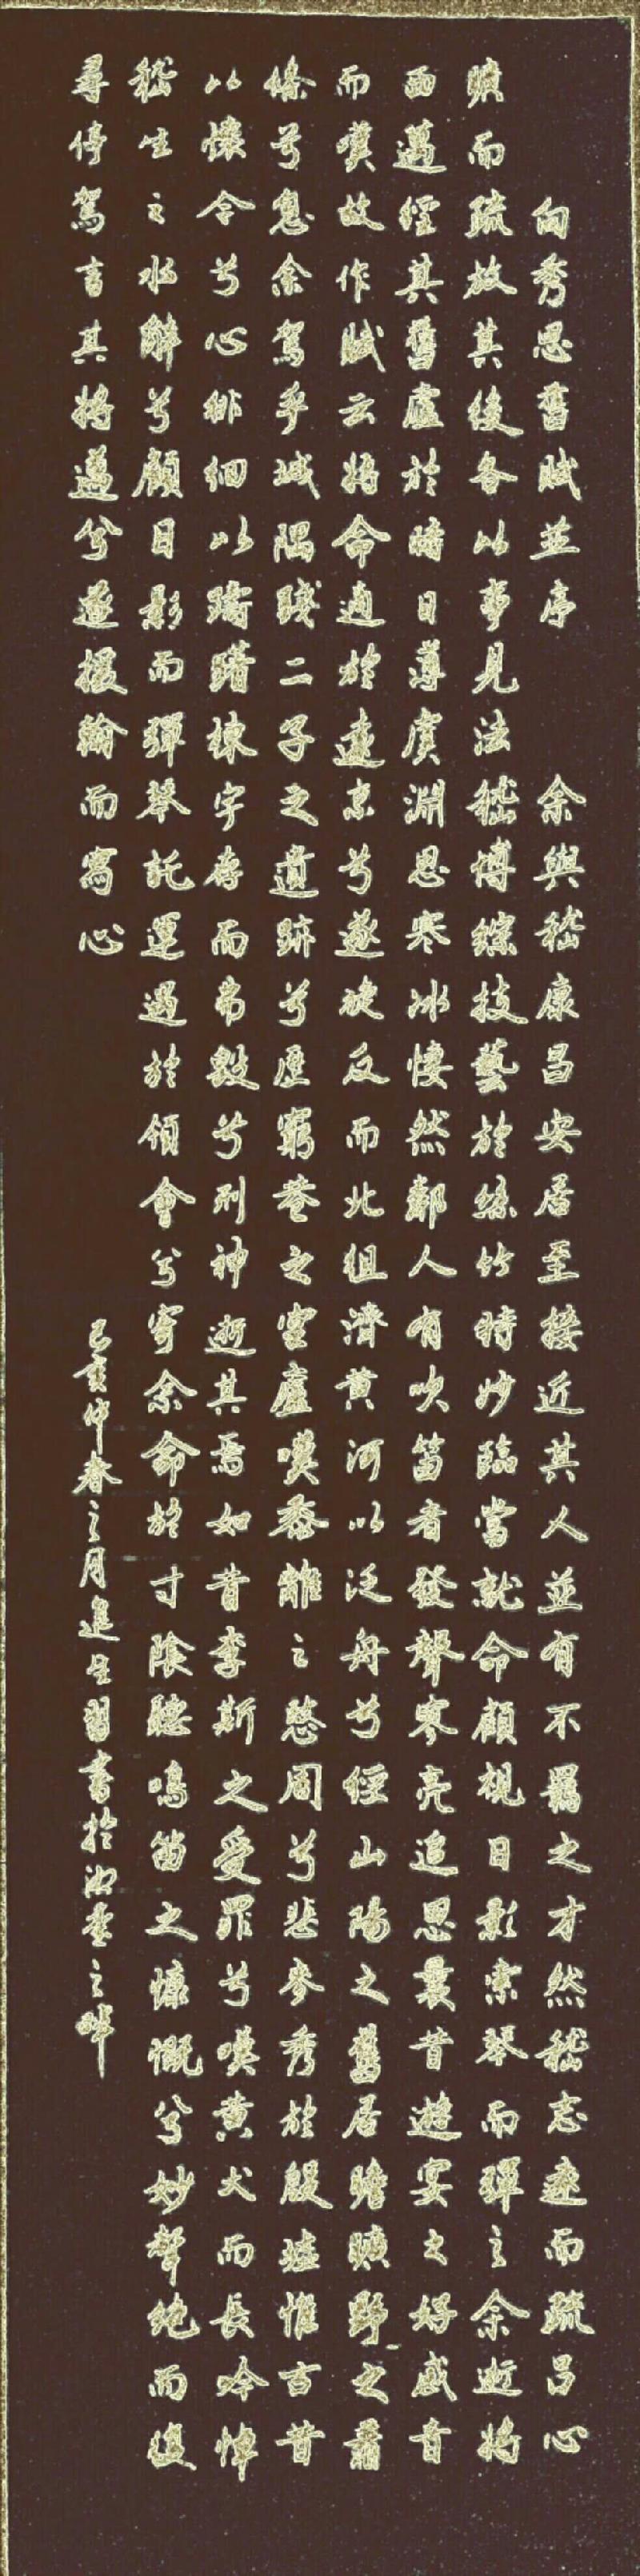 向秀思舊賦並序 余與嵇康呂安居至接近其人並有不羈之才然嵇志遠而疏呂心
曠而疏放其後各以事見法嵇博綜技藝於絲竹特妙臨當就命顧視日影索琴而彈之余逝將
西邁經其舊廬於時日薄虞淵思寒冰悽然鄰人有吹笛者發聲寥亮追思曩昔遊宴之好感音
而嘆故作賦云將命適於遠京兮遂旋反而北徂濟黃河以泛舟兮經山陽之舊居瞻曠野之蕭
條兮息余駕乎城隅踐二子之遺跡兮歷窮巷之空廬嘆黍離之愍周兮悲麥秀於殷墟惟古昔
以懷今兮心徘徊以躊躇棟宇存而弗毀兮形神逝其焉如昔李斯之受罪兮嘆黃犬而長吟悼
嵇生之永辭兮顧日影而彈琴託運遇於領會兮寄余命於寸陰聽鳴笛之慷慨兮妙聲絕而復
尋停駕言其將邁兮遂援翰而寫心
己亥仲春之月 習書於 之畔